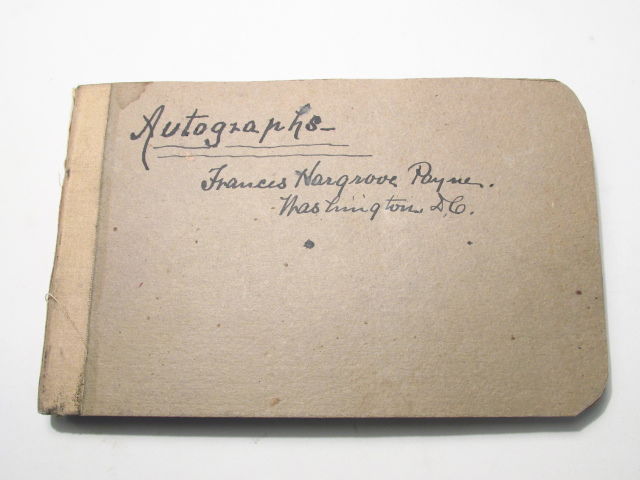 Autographs–
Frances Hargrove Payne.
Washington D.C.